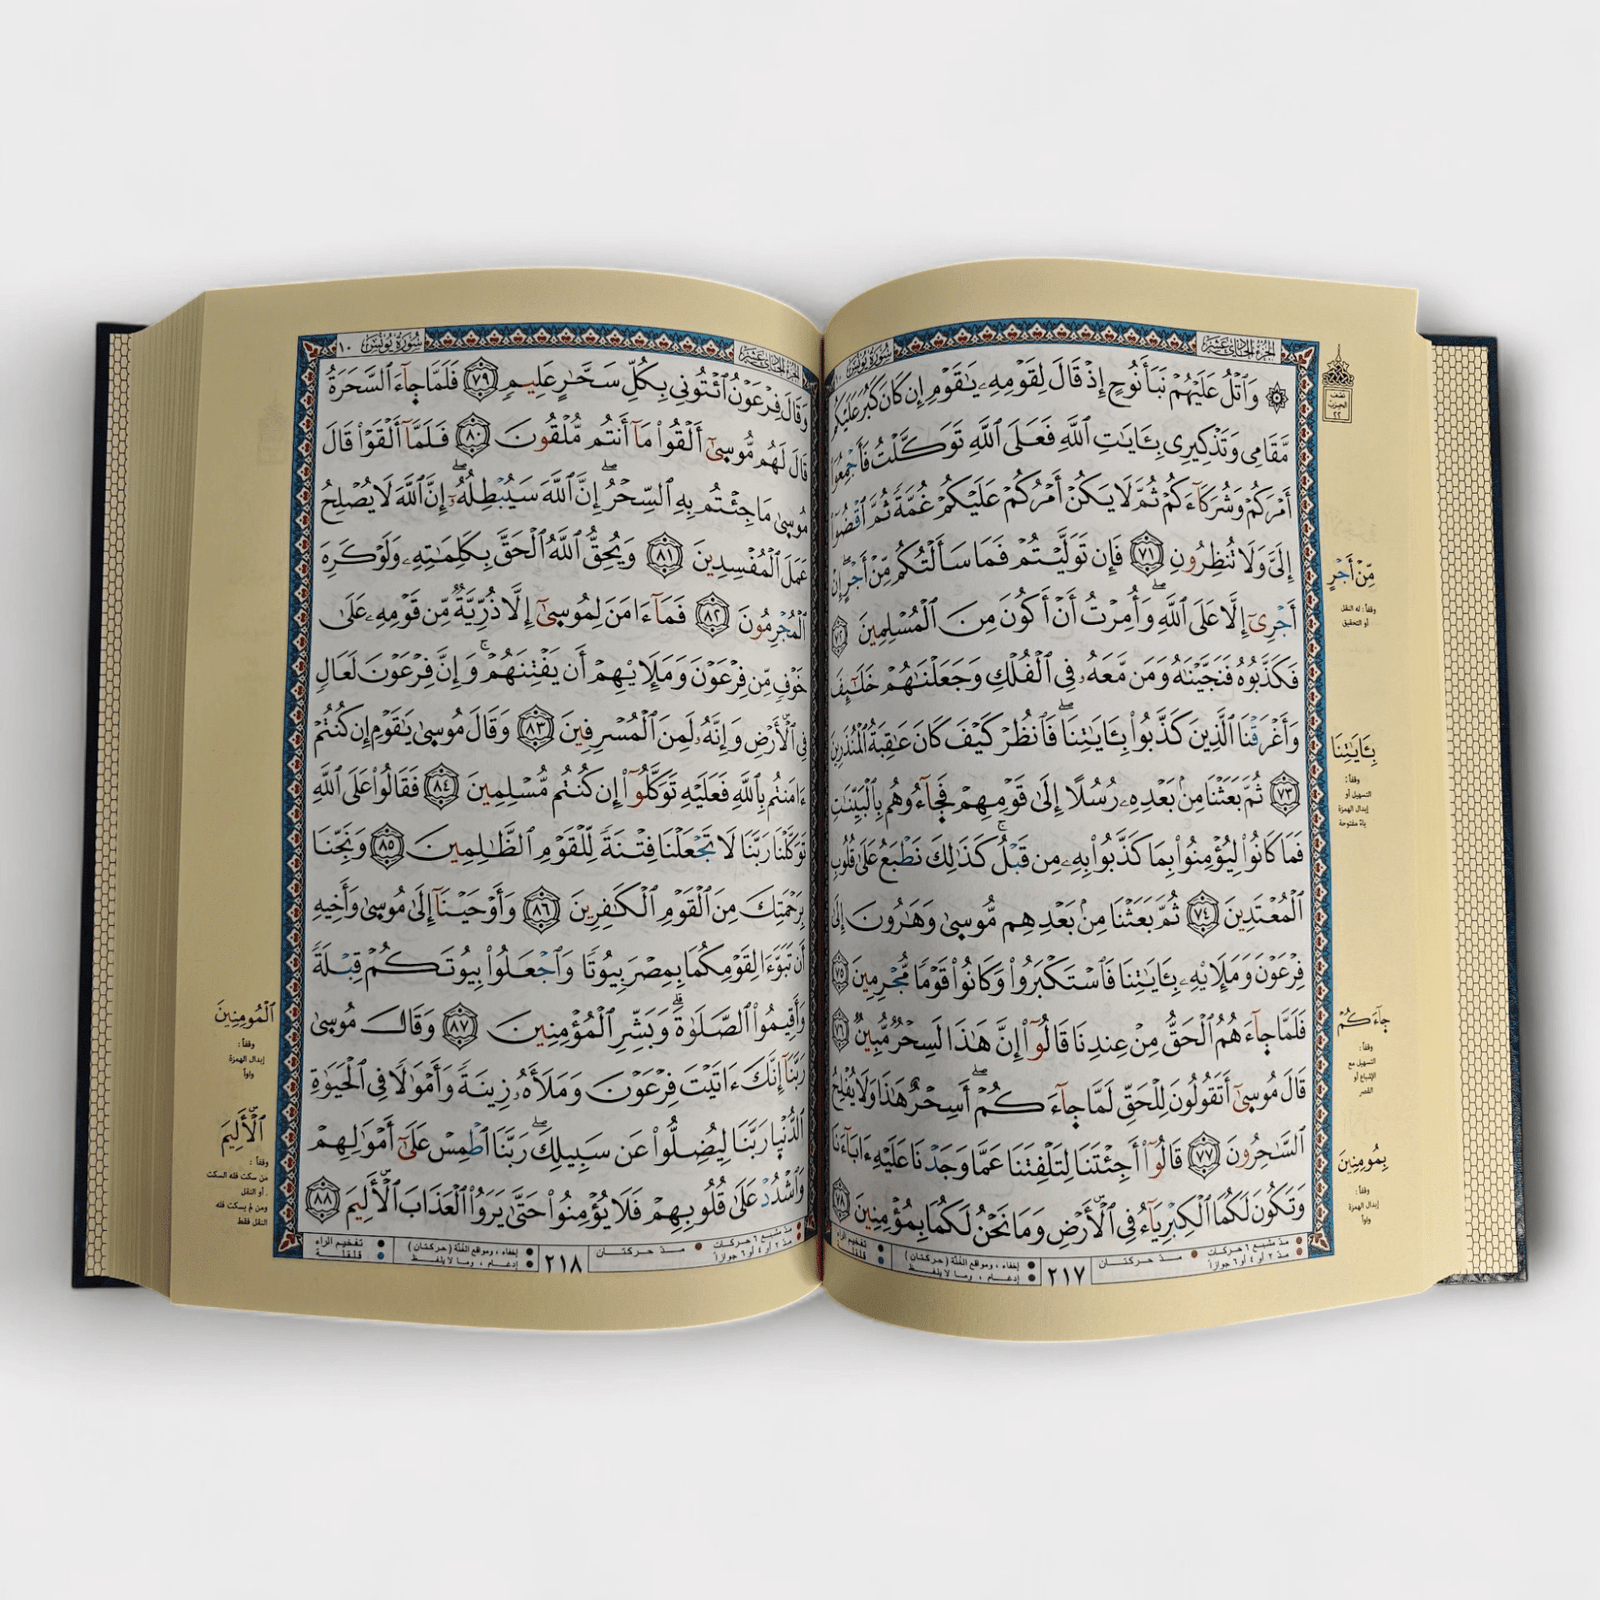 الجزء الحادي عشر
سورة يونس ١٠
۞ وَٱتْلُ عَلَيْهُمْ نَبَأَ نُوحٍ إِذْ قَالَ لِقَوْمِهِۦ يَٰقَوْمِ إِن كَانَ كَبُرَ عَلَيْكُم
مَّقَامِى وَتَذْكِيرِى بِـَٔايَٰتِ ٱللَّهِ فَعَلَى ٱللَّهِ تَوَكَّلْتُ فَأَجْمِعُوٓا۟
أَمْرَكُمْ وَشُرَكَآءَكُمْ ثُمَّ لَا يَكُنْ أَمْرُكُمْ عَلَيْكُمْ غُمَّةً ثُمَّ ٱقْضُوٓا۟
إِلَىَّ وَلَا تُنظِرُونِ ٧١ فَإِن تَوَلَّيْتُمْ فَمَا سَأَلْتُكُم مِّنْ أَجْرٍ ۖ إِنْ
أَجْرِىٓ إِلَّا عَلَى ٱللَّهِ ۖ وَأُمِرْتُ أَنْ أَكُونَ مِنَ ٱلْمُسْلِمِينَ ٧٢
فَكَذَّبُوهُ فَنَجَّيْنَٰهُ وَمَن مَّعَهُۥ فِى ٱلْفُلْكِ وَجَعَلْنَٰهُمْ خَلَٰٓئِفَ
وَأَغْرَقْنَا ٱلَّذِينَ كَذَّبُوا۟ بِـَٔايَٰتِنَا ۖ فَٱنظُرْ كَيْفَ كَانَ عَٰقِبَةُ ٱلْمُنذَرِينَ
٧٣ ثُمَّ بَعَثْنَا مِنۢ بَعْدِهِۦ رُسُلًا إِلَىٰ قَوْمِهِمْ فَجَآءُوهُم بِٱلْبَيِّنَٰتِ
فَمَا كَانُوا۟ لِيُؤْمِنُوا۟ بِمَا كَذَّبُوا۟ بِهِۦ مِن قَبْلُ ۚ كَذَٰلِكَ نَطْبَعُ عَلَىٰ قُلُوبِ
ٱلْمُعْتَدِينَ ٧٤ ثُمَّ بَعَثْنَا مِنۢ بَعْدِهِم مُّوسَىٰ وَهَٰرُونَ إِلَىٰ
فِرْعَوْنَ وَمَلَإِي۟هِۦ بِـَٔايَٰتِنَا فَٱسْتَكْبَرُوا۟ وَكَانُوا۟ قَوْمًا مُّجْرِمِينَ ٧٥
فَلَمَّا جَآءَهُمُ ٱلْحَقُّ مِنْ عِندِنَا قَالُوٓا۟ إِنَّ هَٰذَا لَسِحْرٌ مُّبِينٌ ٧٦
قَالَ مُوسَىٰٓ أَتَقُولُونَ لِلْحَقِّ لَمَّا جَآءَكُمْ ۖ أَسِحْرٌ هَٰذَا وَلَا يُفْلِحُ
ٱلسَّٰحِرُونَ ٧٧ قَالُوٓا۟ أَجِئْتَنَا لِتَلْفِتَنَا عَمَّا وَجَدْنَا عَلَيْهِ ءَابَآءَنَا
وَتَكُونَ لَكُمَا ٱلْكِبْرِيَآءُ فِى ٱلْأَرْضِ وَمَا نَحْنُ لَكُمَا بِمُؤْمِنِينَ ٧٨
نصف الحزب ٢٢
مِّنْ أَجْرٍ
وقفاً : له النقل
أو التحقيق
بِـَٔايَٰتِنَا
وقفاً :
التسهيل أو
إبدال الهمزة
ياءً مفتوحة
جَآءَكُمْ
وقفاً :
التسهيل مع
الإشباع أو
القصر
بِمُومِنِينَ
وقفاً :
إبدال الهمزة
واواً
مدّ مشبع ٦ حركات
مدّ ٢ أو ٤ أو ٦ جوازاً
مدّ حركتان
٢١٧
إخفاء ، ومواقع الغُنَّة (حركتان)
إدغام ، وما لا يُلفظ
تفخيم الراء
قلقلة
الجزء الحادي عشر
سورة يونس ١٠
وَقَالَ فِرْعَوْنُ ٱئْتُونِى بِكُلِّ سَحَّٰرٍ عَلِيمٍ ٧٩ فَلَمَّا جَآءَ ٱلسَّحَرَةُ
قَالَ لَهُم مُّوسَىٰٓ أَلْقُوا۟ مَآ أَنتُم مُّلْقُونَ ٨٠ فَلَمَّآ أَلْقَوْا۟ قَالَ
مُوسَىٰ مَا جِئْتُم بِهِ ٱلسِّحْرُ ۖ إِنَّ ٱللَّهَ سَيُبْطِلُهُۥٓ ۖ إِنَّ ٱللَّهَ لَا يُصْلِحُ
عَمَلَ ٱلْمُفْسِدِينَ ٨١ وَيُحِقُّ ٱللَّهُ ٱلْحَقَّ بِكَلِمَٰتِهِۦ وَلَوْ كَرِهَ
ٱلْمُجْرِمُونَ ٨٢ فَمَآ ءَامَنَ لِمُوسَىٰٓ إِلَّا ذُرِّيَّةٌ مِّن قَوْمِهِۦ عَلَىٰ
خَوْفٍ مِّن فِرْعَوْنَ وَمَلَإِي۟هِمْ أَن يَفْتِنَهُمْ ۚ وَإِنَّ فِرْعَوْنَ لَعَالٍ
فِى ٱلْأَرْضِ وَإِنَّهُۥ لَمِنَ ٱلْمُسْرِفِينَ ٨٣ وَقَالَ مُوسَىٰ يَٰقَوْمِ إِن كُنتُمْ
ءَامَنتُم بِٱللَّهِ فَعَلَيْهِ تَوَكَّلُوٓا۟ إِن كُنتُم مُّسْلِمِينَ ٨٤ فَقَالُوا۟ عَلَى ٱللَّهِ
تَوَكَّلْنَا رَبَّنَا لَا تَجْعَلْنَا فِتْنَةً لِّلْقَوْمِ ٱلظَّٰلِمِينَ ٨٥ وَنَجِّنَا
بِرَحْمَتِكَ مِنَ ٱلْقَوْمِ ٱلْكَٰفِرِينَ ٨٦ وَأَوْحَيْنَآ إِلَىٰ مُوسَىٰ وَأَخِيهِ
أَن تَبَوَّءَا لِقَوْمِكُمَا بِمِصْرَ بِيُوتًا وَٱجْعَلُوا۟ بِيُوتَكُمْ قِبْلَةً
وَأَقِيمُوا۟ ٱلصَّلَوٰةَ ۗ وَبَشِّرِ ٱلْمُؤْمِنِينَ ٨٧ وَقَالَ مُوسَىٰ
رَبَّنَآ إِنَّكَ ءَاتَيْتَ فِرْعَوْنَ وَمَلَأَهُۥ زِينَةً وَأَمْوَٰلًا فِى ٱلْحَيَوٰةِ
ٱلدُّنْيَا رَبَّنَا لِيُضِلُّوا۟ عَن سَبِيلِكَ ۖ رَبَّنَا ٱطْمِسْ عَلَىٰٓ أَمْوَٰلِهِمْ
وَٱشْدُدْ عَلَىٰ قُلُوبِهِمْ فَلَا يُؤْمِنُوا۟ حَتَّىٰ يَرَوُا۟ ٱلْعَذَابَ ٱلْأَلِيمَ ٨٨
ٱلْمُومِنِينَ
وقفاً :
إبدال الهمزة
واواً
ٱلْأَلِيمَ
وقفاً :
من سكت فله السكت
أو النقل .
ومن لم يسكت فله
النقل فقط
مدّ مشبع ٦ حركات
مدّ ٢ أو ٤ أو ٦ جوازاً
مدّ حركتان
٢١٨
إخفاء ، ومواقع الغُنَّة (حركتان)
إدغام ، وما لا يُلفظ
تفخيم الراء
قلقلة